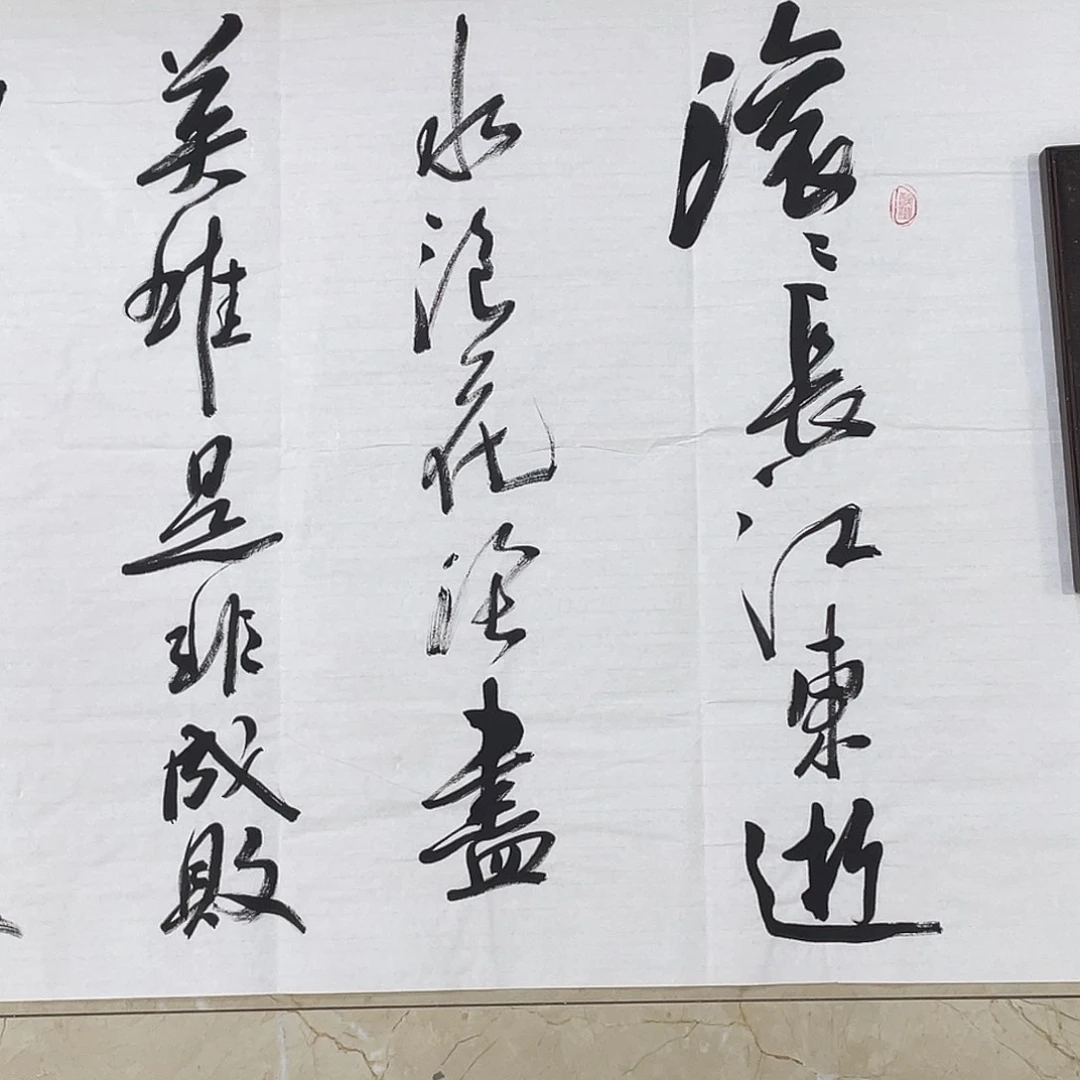 滚〻長江東逝
水浪花淘盡
英雄是非成敗